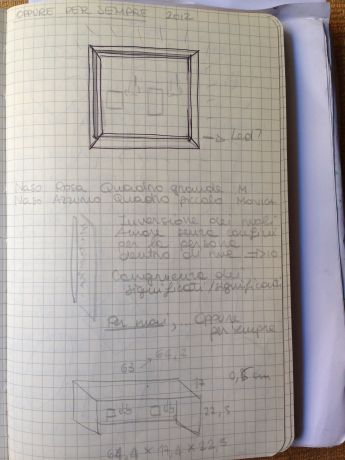 OPPURE PER SEMPRE 2012
→ Led?
Naso Rosa Quadro grande M
Naso Azzurro Quadro piccolo
Inversione dei ruoli
Amore senza confini
per la persona
dentro di me → io
Congruenza dei
significati/significati
Per mai, ... Oppure
per sempre
63 → 64,2
17
0,5 cm
22,5
64,4 × 17,4 × 22,9